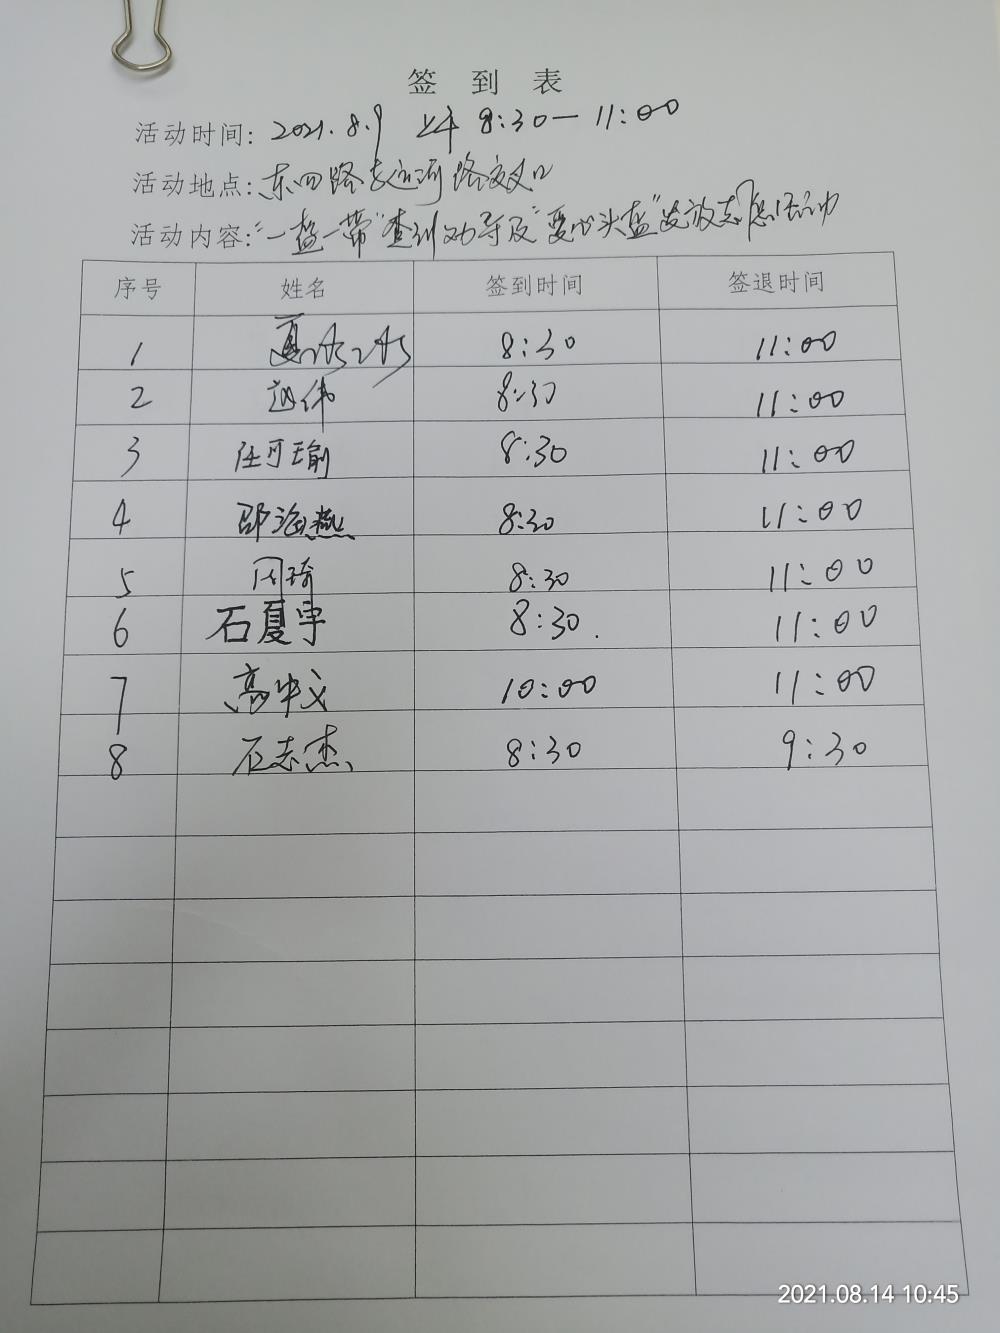 签 到 表
活动时间: 2021.8.9 上午 8:30—11:00
活动地点: 东四路与运河路交叉口
活动内容: "一盔一带"查纠劝导及"爱心头盔"发放志愿活动
序号 姓名 签到时间 签退时间
1 夏 8:30 11:00
2 赵伟 8:30 11:00
3 任可瑜 8:30 11:00
4 邵海燕 8:30 11:00
5 周琦 8:30 11:00
6 石夏宇 8:30. 11:00
7 高中义 10:00 11:00
8 石志杰 8:30 9:30
2021.08.14 10:45